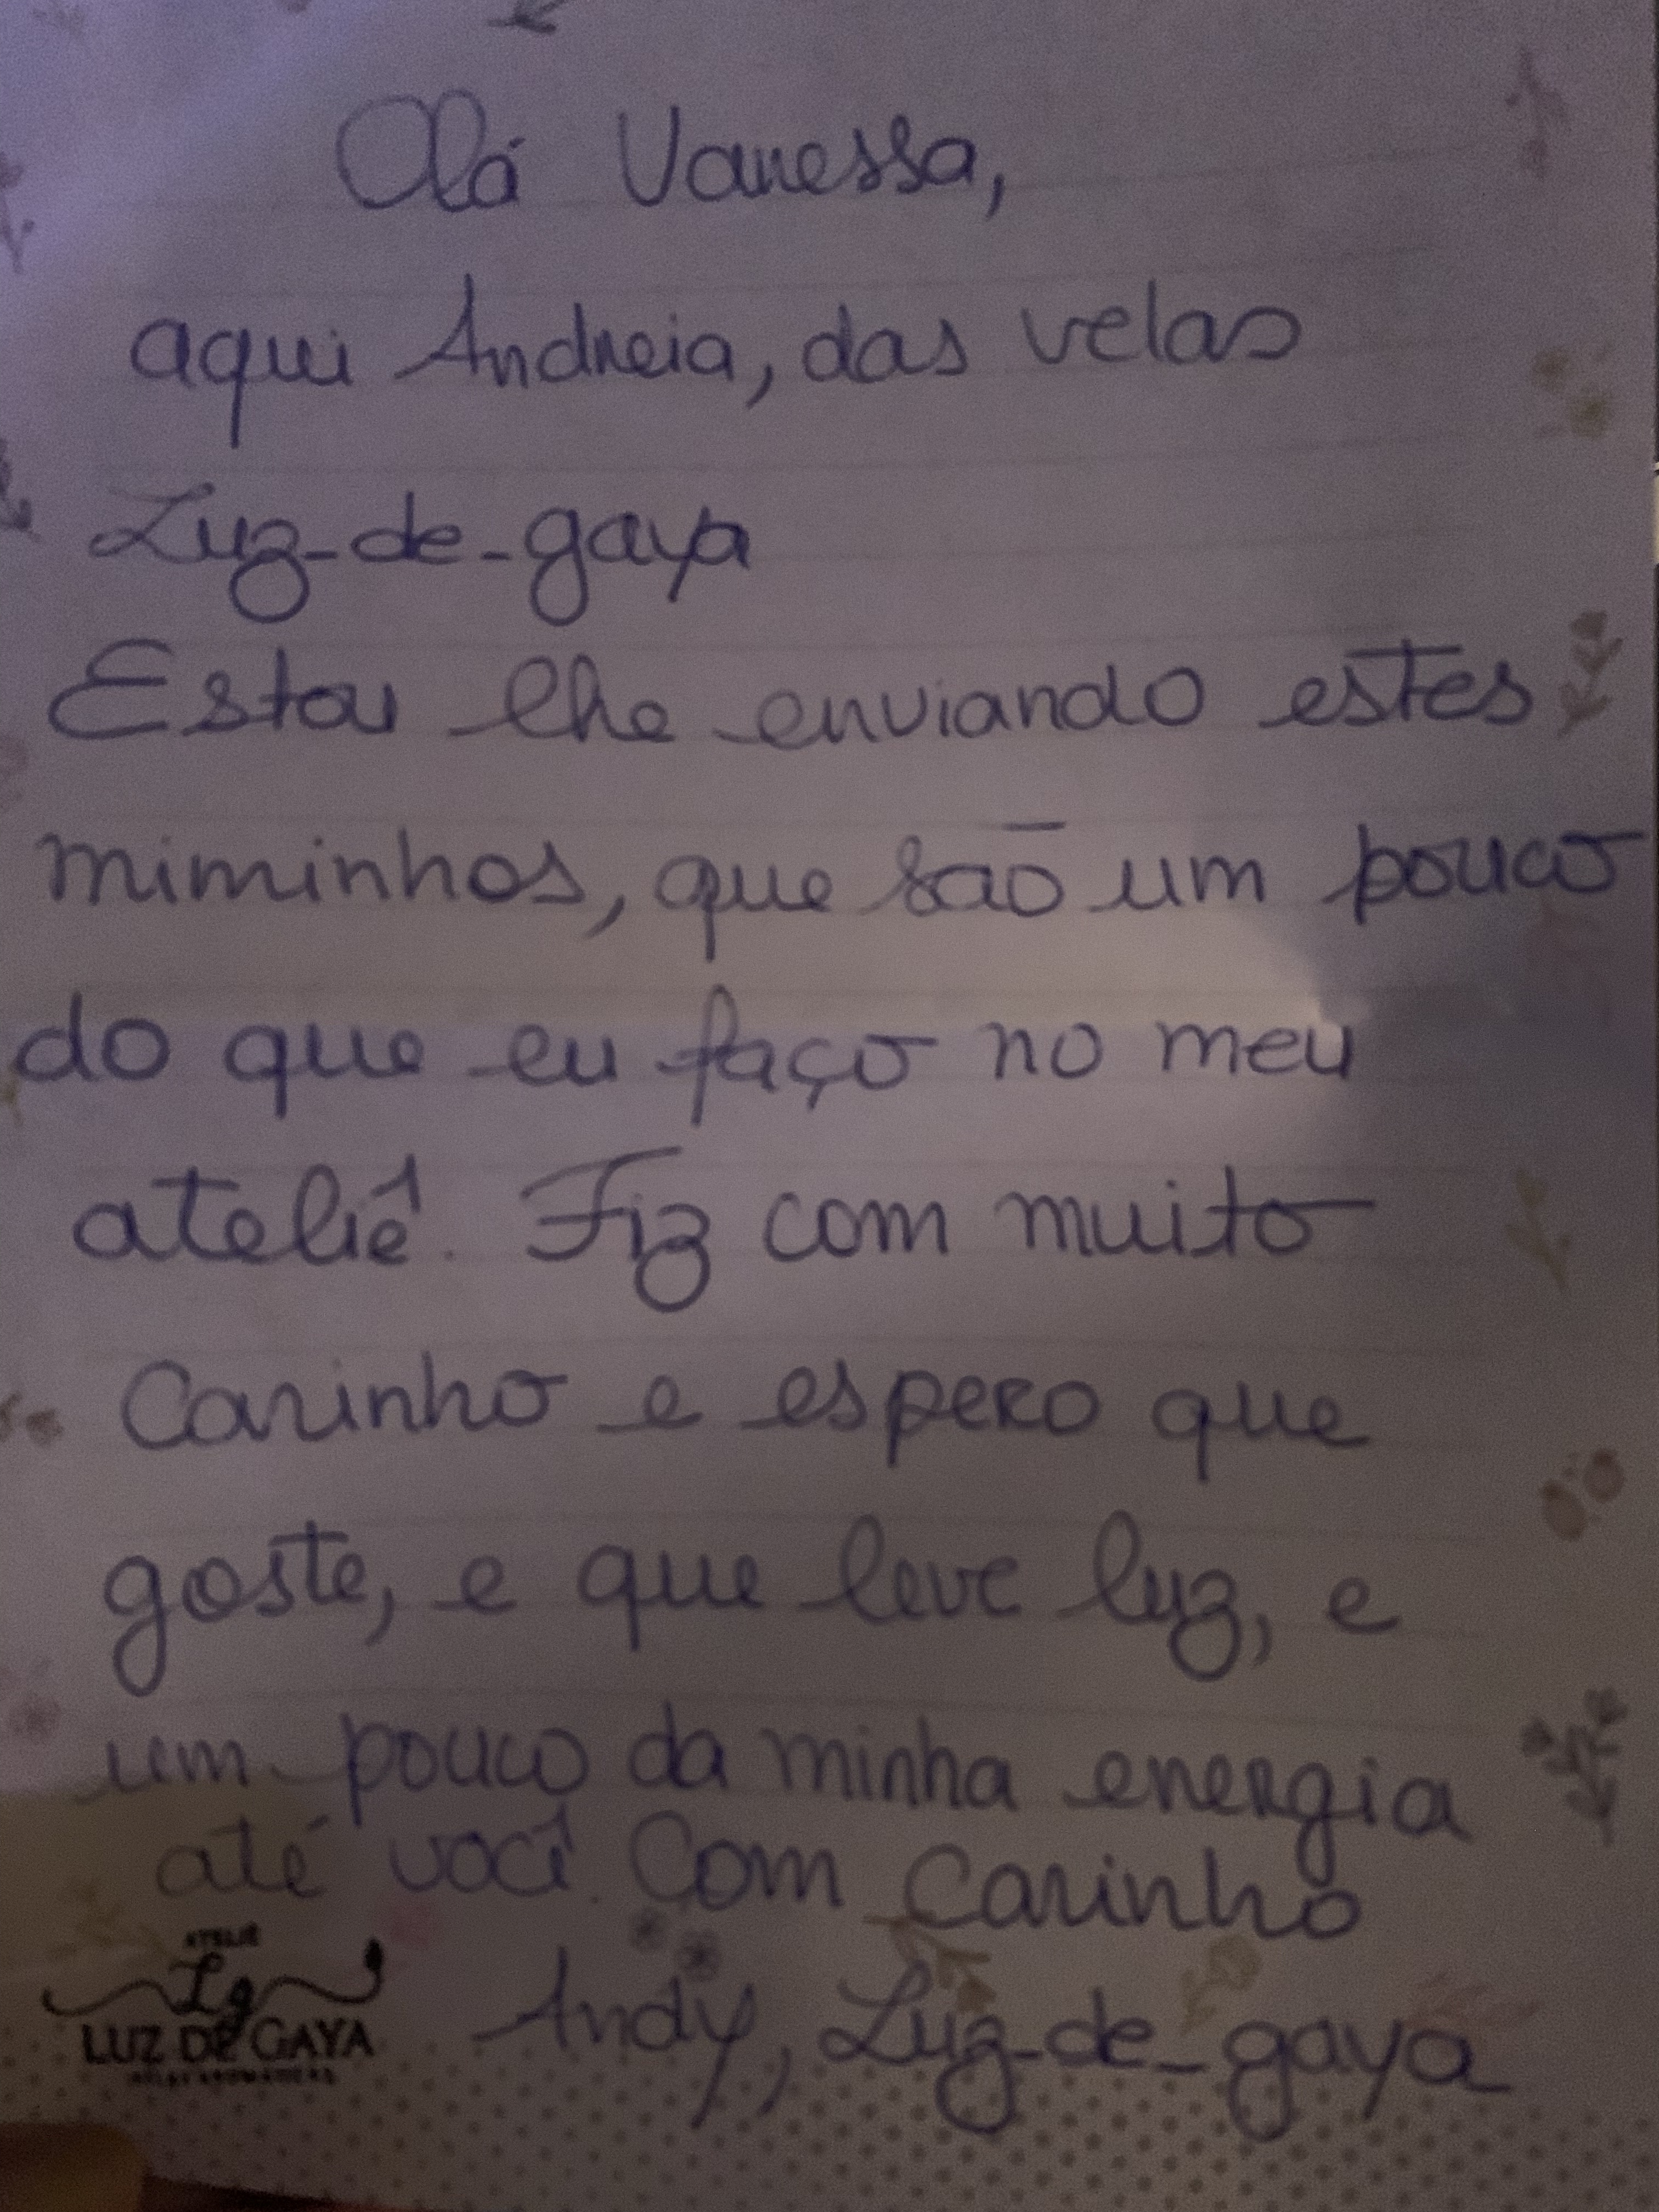 Olá Vanessa,
aqui Andreia, das velas
Luz-de-gaya
Estou lhe enviando estes
miminhos, que são um pouco
do que eu faço no meu
ateliê. Fiz com muito
Carinho e espero que
goste, e que leve luz, e
um pouco da minha energia
até você. Com Carinho
Andy, Luz-de-gaya
ATELIÊ
Lg
LUZ DE GAYA